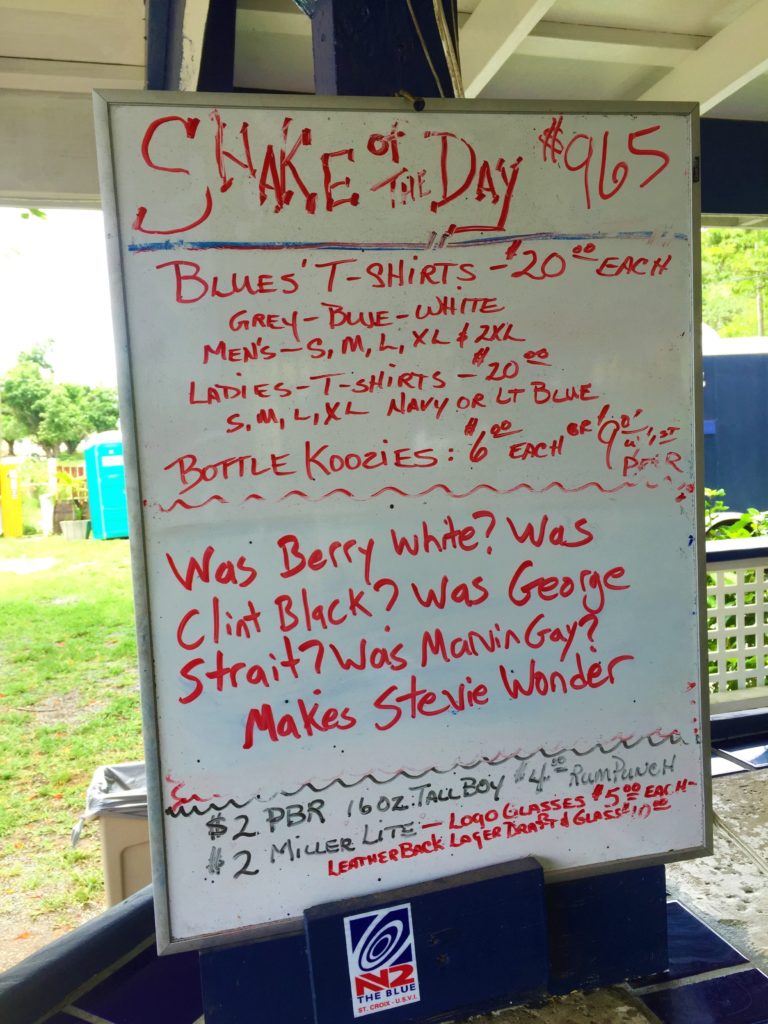 SHAKE OF THE DAY $965
BLUES' T-SHIRTS - $20.00 EACH
GREY - BLUE - WHITE
MEN'S - S, M, L, XL & 2XL
LADIES - T-SHIRTS - $20.00
S, M, L, XL NAVY OR LT BLUE
BOTTLE KOOZIES: $6.00 EACH OR $9.00 W/ 1ST BEER
Was Berry White? Was
Clint Black? Was George
Strait? Was Marvin Gay?
Makes Stevie Wonder
$2 PBR 16 OZ. TALL BOY $4.00 RUM PUNCH
$2 MILLER LITE - LOGO GLASSES $5.00 EACH -
LEATHERBACK LAGER DRAFT & GLASS $10.00
N2
THE BLUE
ST. CROIX - U.S.V.I.